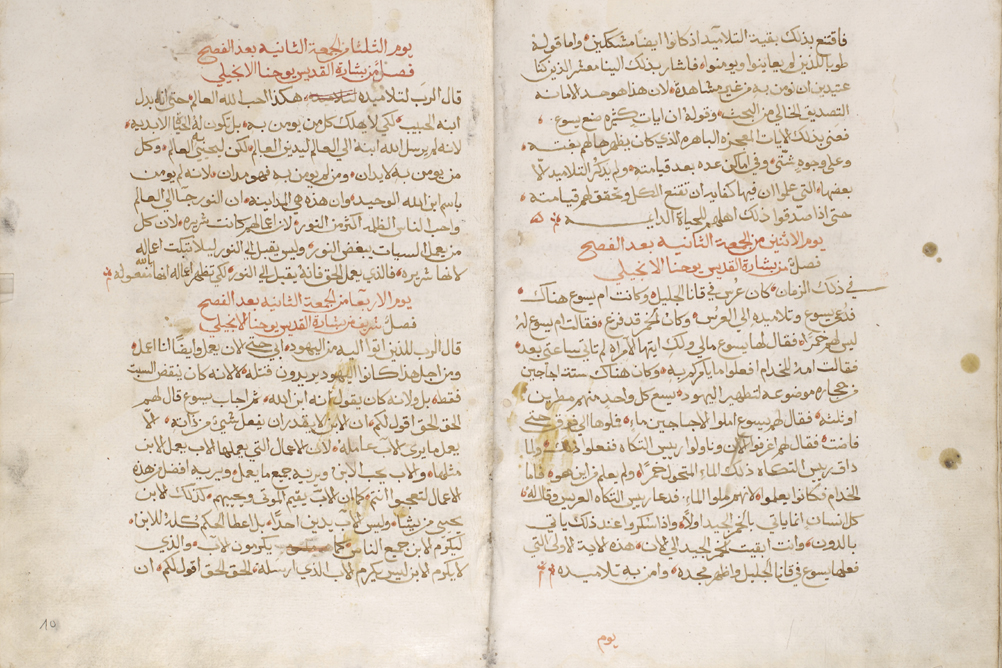 فاقتنع بذلك بقية التلاميذ اذ كانوا ايضا مشككين واما قوله
طوبا للذين لم يعاينوا ويومنوا فاشار بذلك الينا معشر الذين كنا
عتيدين ان نومن به من غير مشاهدة لان هذا هو حد الامانه
التصديق الخالي من البحث وقوله ان ايات كثيره صنع يسوع
فعنى بذلك الايات المعجزه الباهره الذي كان يظهرها لهم بغته
وعلى وجوه شتى وفي اماكن عده بعد قيامته ولم يذكر التلاميذ الا
بعضها التي علموا ان فيها كفايه ان تقنع الكل وتحقق لهم قيامته
حتى اذا صدقوا ذلك اهلهم للحياة الدايمه
يوم الاثنين من الجمعة الثانيه بعد الفصح
فصل من بشارة القديس يوحنا الانجيلي
في ذلك الزمان كان عرس في قانا الجليل وكانت ام يسوع هناك
فدعي يسوع وتلاميذه الى العرس وكان الخمر قد فرغ فقالت ام يسوع له
ليس لهم خمرا فقال لها يسوع مالي ولك ايتها الامراه لم تاتي ساعتي بعد
فقالت امه للخدام افعلوا ما يامركم به وكان هناك ستة اجاجين
من حجاره موضوعه لتطهير اليهود يسع كل واحد منهم مطرين
او ثلثه فقال لهم يسوع املوا الاجاجين ماء فملوها الى فوق حتى
فاضت فقال لهم اغرفوا الان وناولوا رييس التكاه ففعلوا ذلك ولما
ذاق رييس التكاه ذلك الماء المتحول خمرا ولم يعلم من اين هو فاما
الخدام فكانوا يعلموا لانهم ملوا الماء فدعا رييس التكاه العريس وقال له
كل انسان انما ياتي بالخمر الجيد اولا واذا سكروا عند ذلك ياتي
بالدون وانت ابقيت الخمر الجيد الى الان هذه الاية الاولى التي
فعلها يسوع في قانا الجليل واظهر مجده وامن به تلاميذه
يوم
يوم الثلثا من الجمعة الثانيه بعد الفصح
فصل من بشارة القديس يوحنا الانجيلي
قال الرب لتلاميذه هكذا احب الله العالم حتى انه بذل
ابنه الحبيب لكي لا يهلك كل من يومن به بل تكون له الحياة الابديه
لانه لم يرسل الله ابنه الى العالم ليدين العالم لكن ليحيى به العالم وكل
من يومن به لا يدان ومن لم يومن به فهو مدان لانه لم يومن
باسم ابن الله الوحيد وان هذه هي الداينه ان النور جا الى العالم
واحب الناس الظلمه اكثر من النور لان اعمالهم كانت شريره لان كل
من يعمل السيات يبغض النور وليس يقبل الى النور ليلا تبكت اعماله
لانها شريره فالذي يعمل الحق فانه يقبل الى النور لكي تظهر اعماله انها بالله معموله
يوم الاربعا من الجمعة الثانيه بعد الفصح
فصل شريف من بشارة القديس يوحنا الانجيلي
قال الرب للذين اتوا اليه من اليهود ابي حتى الان يعمل وايضا انا اعمل
ومن اجل هذا كانوا اليهود يريدون قتله لا لانه كان ينقض السبت
فقط بل ولانه كان يقول انه ابن الله ثم اجاب يسوع قال لهم
الحق الحق اقول لكم ان الابن لا يقدر ان يفعل شي من ذاته الا
يعمل ما يرى الاب عامله لان الاعمال التي يعملها الاب يعمل الابن
مثلها والاب يحب الابن ويريه جميع ما يعمل ويريه افضل من هذه
الاعمال لتعجبوا انتم كما ان الاب يقيم الموتى ويحييهم كذلك الابن
يحيي من يشا وليس الاب يدين احدا بل اعطا الحكم كله للابن
ليكرم الابن جميع الناس كما يكرمون الاب والذي
لا يكرم الابن ليس يكرم الاب الذي ارسله الحق الحق اقول لكم ان
10